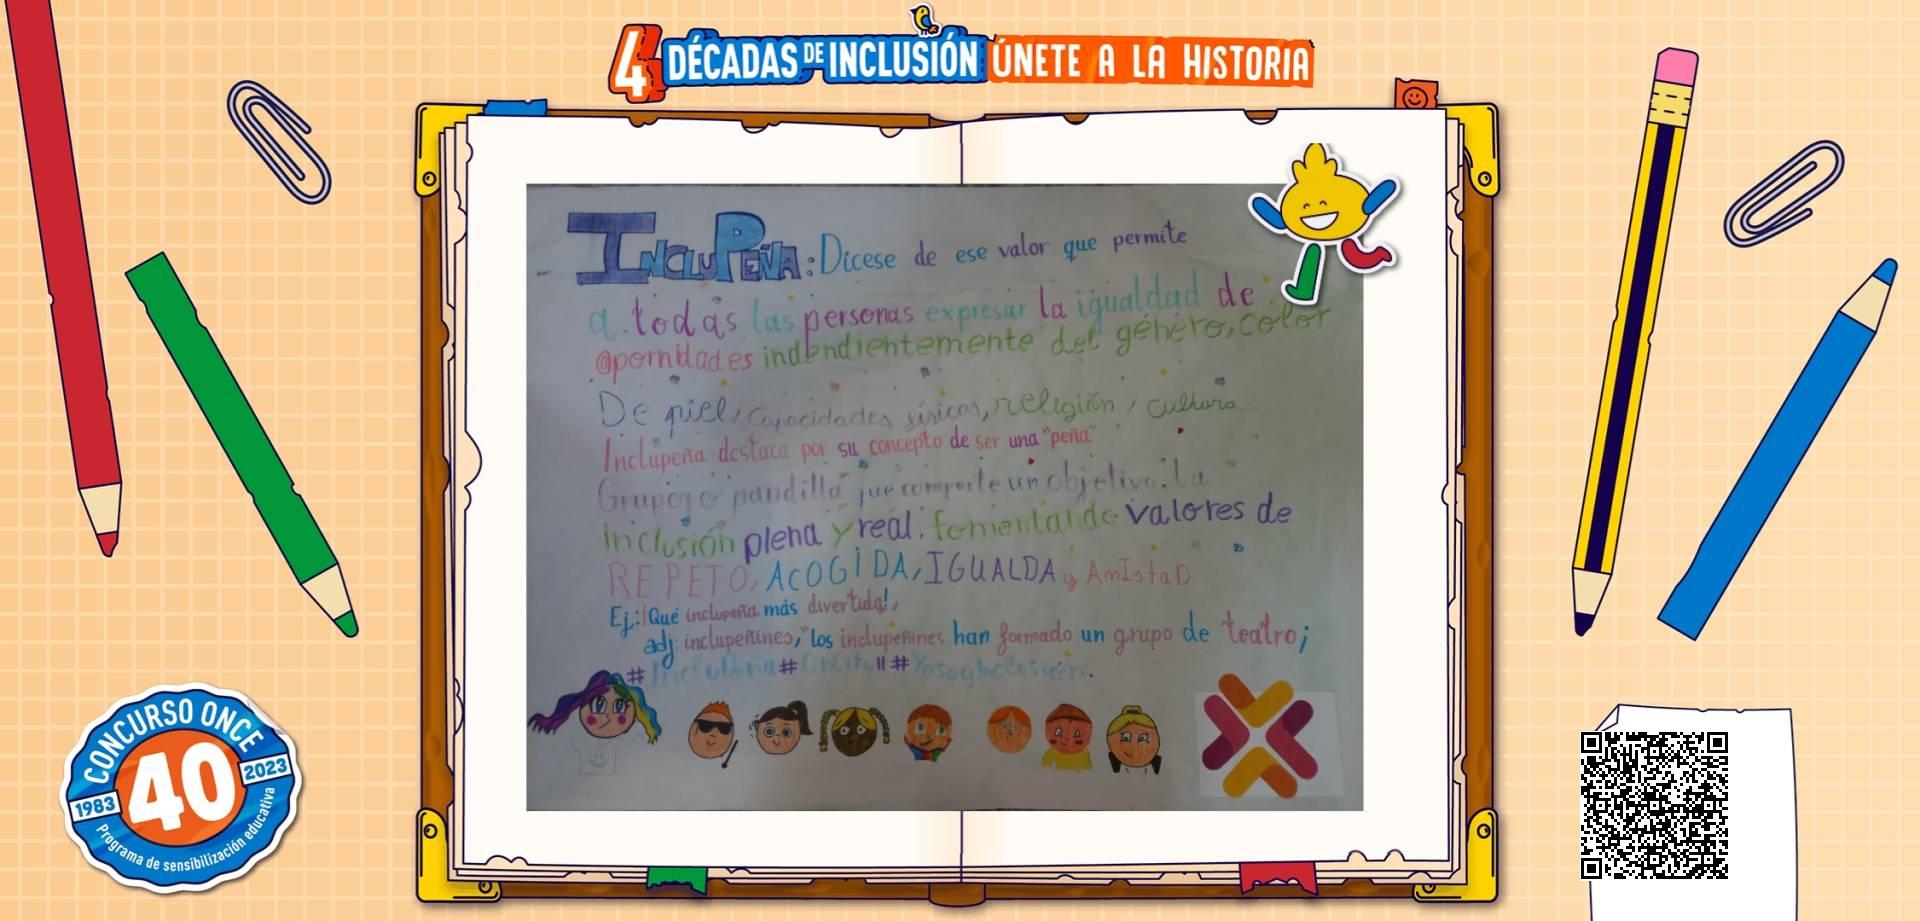 4 DÉCADAS DE INCLUSIÓN ÚNETE A LA HISTORIA
INCLUPEÑA: Dícese de ese valor que permite
a todas las personas expresar la igualdad de
@pornidades indendientemente del género, color
De piel, capacidades físicas, religión, cultura...
Inclupeña destaca por su concepto de ser una "peña"
Grupo, o pandilla que comparte un objetivo. La
inclusión plena y real. fomentando valores de
REPETO, ACOGIDA, IGUALDA y AmIstaD.
Ej: ¡Qué inclupeña más divertida!,
adj: inclupeñines, "los inclupeñines han formado un grupo de teatro;
#IncluPeña # # YosoyInclusión.
CONCURSO ONCE
40
1983
2023
Programa de sensibilización educativa